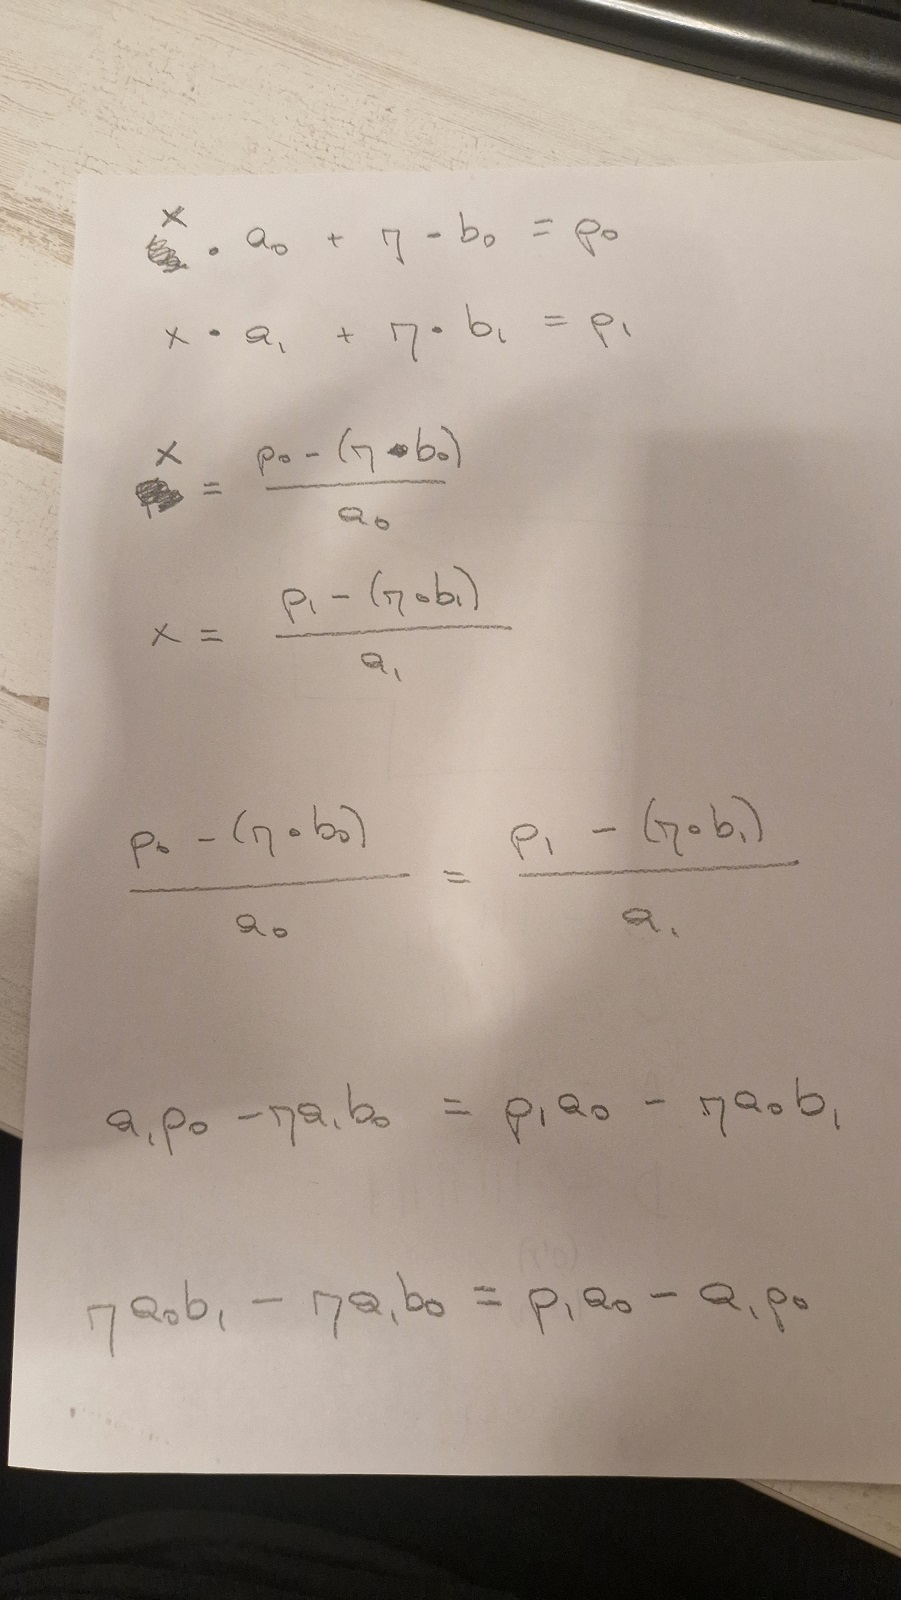 x · a₀ + η · b₀ = p₀
x · a₁ + η · b₁ = p₁
x = (p₀ - (η · b₀)) / a₀
x = (p₁ - (η · b₁)) / a₁
(p₀ - (η · b₀)) / a₀ = (p₁ - (η · b₁)) / a₁
a₁p₀ - ηa₁b₀ = p₁a₀ - ηa₀b₁
ηa₀b₁ - ηa₁b₀ = p₁a₀ - a₁p₀